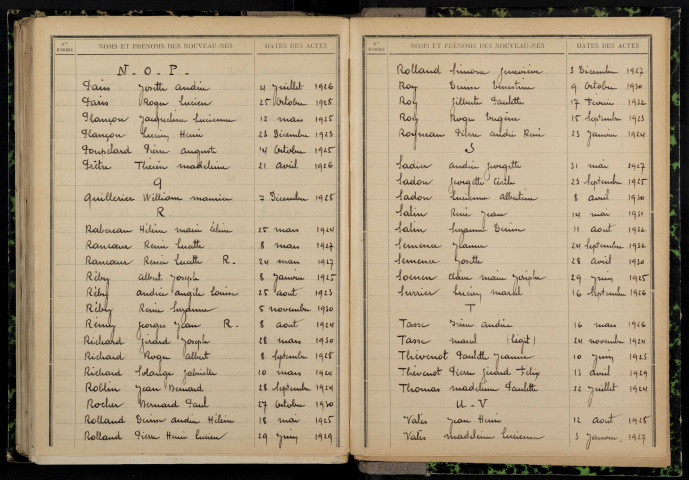 Nos
D'ORDRE
NOMS ET PRÉNOMS DES NOUVEAU-NÉS
DATES DES ACTES
N.O.P.
Paris Josette Andrée 4 Juillet 1926
Paris Roger Lucien 25 Octobre 1928
Plançon Jacqueline Lucienne 12 mars 1925
Plançon Lucien Henri 23 Décembre 1923
Pierre Auguste 14 Octobre 1925
Prêtre Thérèse Madeleine 21 avril 1926
Q
Quillerier William Maurice 7 Décembre 1925
R
Rabereau Hélène Marie 25 mars 1924
Rancoeur Renée Lucette 8 mars 1927
Rancoeur Renée Lucette R. 24 mars 1927
Réby Albert Joseph 8 Janvier 1925
Réby Andrée Angèle Louise 25 août 1923
Réby Renée Suzanne 5 novembre 1930
Rémy Georges Jean R. 8 août 1924
Richard Gérard Joseph 28 mars 1930
Richard Roger Albert 8 septembre 1928
Richard Solange Gabrielle 10 mars 1924
Roblin Jean Bernard 28 septembre 1924
Rocher Bernard Paul 27 Octobre 1930
Rolland Denise Andrée Hélène 18 mai 1925
Rolland Pierre Henri Lucien 29 Juin 1929
Nos
D'ORDRE
NOMS ET PRÉNOMS DES NOUVEAU-NÉS
DATES DES ACTES
Rolland Simone Geneviève 3 Décembre 1927
Roy Denise Ernestine 9 Octobre 1930
Roy Gilberte Paulette 17 Février 1932
Roy Roger Eugène 15 Septembre 1923
Pierre André René 23 Janvier 1924
S
Sadier Andrée Georgette 31 mai 1927
Sadon Georgette Cécile 23 septembre 1925
Sadon Lucienne Albertine 8 avril 1930
Salin René Jean 14 mai 1931
Salin Suzanne Denise 11 août 1932
Semence Jeanne 24 septembre 1932
Semence Josette 28 avril 1930
Marie Josèphe 29 Juin 1925
Lucien Marcel 16 Septembre 1926
T
Tasse Irène Andrée 16 mars 1926
Tasse Marcel (légit) 24 novembre 1924
Thévenot Paulette Jeanne 10 Juin 1923
Thévenot Pierre Gérard Félix 13 avril 1929
Thomas Madeleine Paulette 22 Juillet 1924
U-V
Valès Jean Henri 12 août 1928
Valès Madeleine Lucienne 3 Janvier 1927